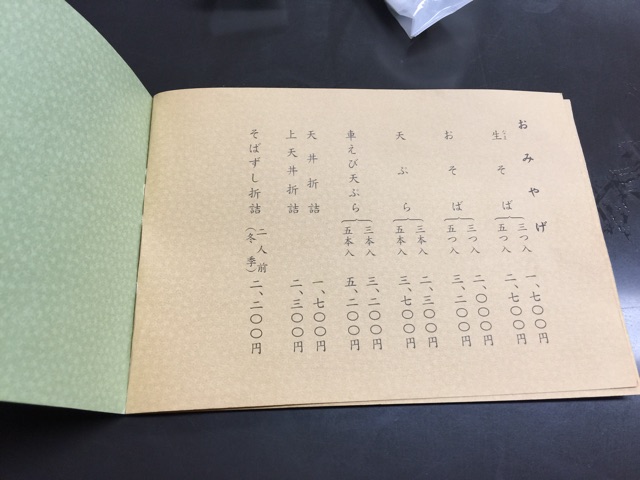 おみやげ
生そば 三つ入 一、七〇〇円
五つ入 二、七〇〇円
おそば 三つ入 二、〇〇〇円
五つ入 三、二〇〇円
天ぷら 三本入 二、三〇〇円
五本入 三、七〇〇円
車えび天ぷら 三本入 三、二〇〇円
五本入 五、二〇〇円
天丼折詰 一、七〇〇円
上天丼折詰 二、三〇〇円
そばずし折詰 二人前(冬季) 二、二〇〇円